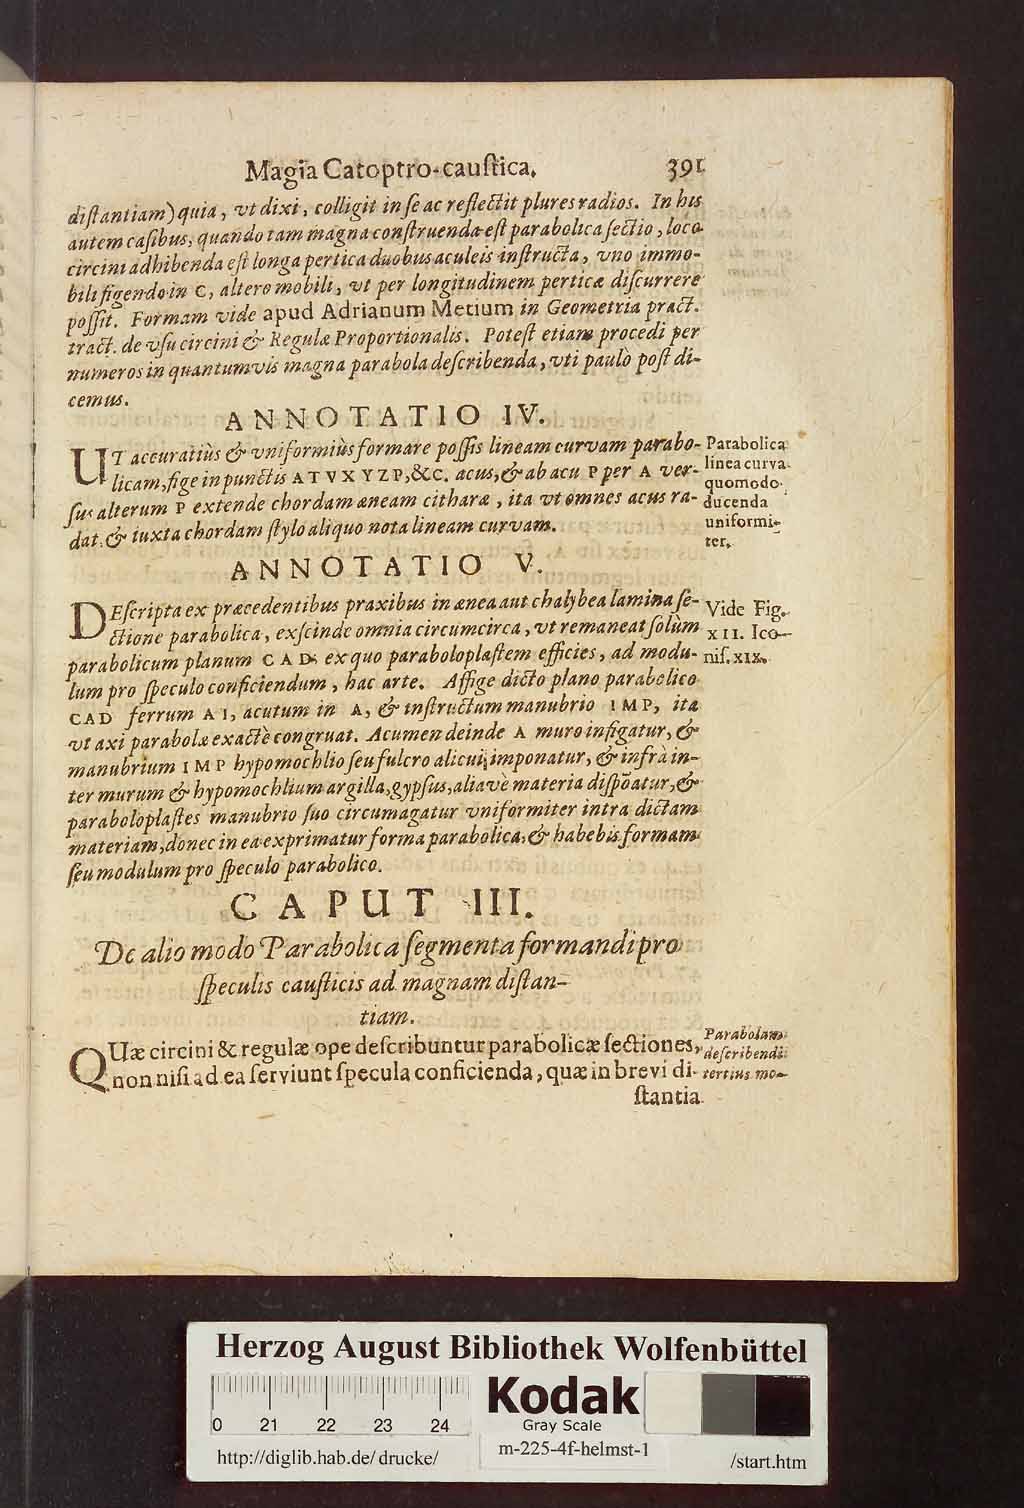 Magia Catoptro-cauſtica. 391
diſtantiam) quia, vt dixi, colligit in ſe ac reflectit plures radios. In his
autem caſibus, quando tam magna conſtruenda eſt parabolica ſectio, loco
circini adhibenda eſt longa pertica duobus aculeis inſtructa, vno immo-
bili figendo in C, altero mobili, vt per longitudinem perticæ diſcurrere
poſſit. Formam vide apud Adrianum Metium in Geometria pract.
tract. de vſu circini & Regulæ Proportionalis. Poteſt etiam procedi per
numeros in quantumvis magna parabola deſcribenda, vti paulo poſt di-
cemus.
ANNOTATIO IV.
UT accuratiùs & vniformiùs formare poſſis lineam curvam parabo-
licam, fige in punctis A T V X Y Z P, &C. acus, & ab acu P per A ver-
ſus alterum P extende chordam æneam citharæ, ita vt omnes acus ra-
dat, & iuxta chordam ſtylo aliquo nota lineam curvam.
Parabolica
linea curva
quomodo
ducenda
uniformi-
ter.
ANNOTATIO V.
DEſcripta ex præcedentibus praxibus in ænea aut chalybea lamina ſe-
ctione parabolica, exſcinde omnia circumcirca, vt remaneat ſolùm
parabolicum planum CAD; ex quo paraboloplaſtem efficies, ad modu-
lum pro ſpeculo conficiendum, hac arte. Affige dicto plano parabolico
CAD ferrum AI, acutum in A, & inſtructum manubrio IMP, ita
vt axi parabolæ exactè congruat. Acumen deinde A muro infigatur, &
manubrium IMP hypomochlio ſeu fulcro alicui imponatur, & infrà in-
ter murum & hypomochlium argilla, gypſus, aliavè materia diſpõatur, &
paraboloplaſtes manubrio ſuo circumagatur vniformiter intra dictam
materiam, donec in ea exprimatur forma parabolica, & habebis formam
ſeu modulum pro ſpeculo parabolico.
Vide Fig.
XII. Ico-
niſ. XIX.
CAPUT III.
De alio modo Parabolica ſegmenta formandi pro
ſpeculis cauſticis ad magnam diſtan-
tiam.
QUæ circini & regulæ ope deſcribuntur parabolicæ ſectiones,
non niſi ad ea ſerviunt ſpecula conficienda, quæ in brevi di-
ſtantia
Parabolam
deſcribendi
tertius mo-
Herzog August Bibliothek Wolfenbüttel
0 21 22 23 24
Kodak
Gray Scale
http://diglib.hab.de/drucke/
m-225-4f-helmst-1
/start.htm